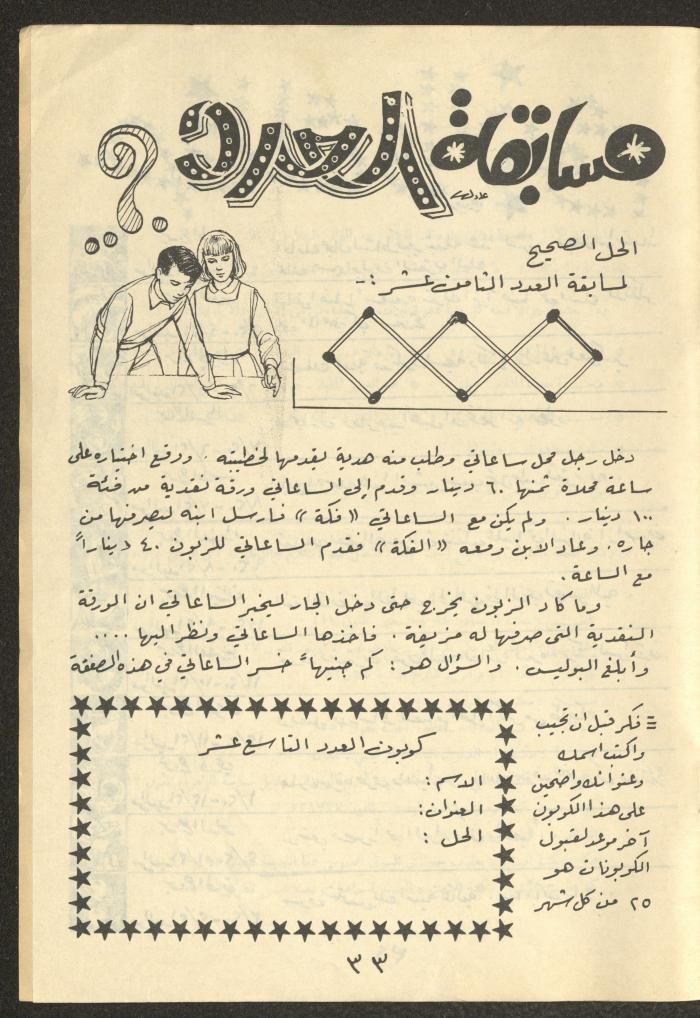 مسابقة العدد
الحل الصحيح
لمسابقة العدد الثامن عشر :ـ
دخل رجل محل ساعاتي وطلب منه هدية ليقدمها لخطيبته . ووقع اختياره على
ساعة محلاة ثمنها ٦٠ دينار وقدم إلى الساعاتي ورقة نقدية من فئة
١٠٠ دينار . ولم يكن مع الساعاتي «فكة» فارسل ابنه ليصرفها من
جاره . وعاد الابن ومعه «الفكة» فقدم الساعاتي للزبون ٤٠ ديناراً
مع الساعة .
وما كاد الزبون يخرج حتى دخل الجار ليخبر الساعاتي ان الورقة
النقدية التي صرفها له مزيفة . فاخذها الساعاتي ونظر اليها ....
وأبلغ البوليس . والسؤال هو : كم جنيهاً خسر الساعاتي في هذه الصفقة
فكر قبل ان تجيب
واكتب اسمك
وعنوانك واضحين
على هذا الكوبون
آخر موعد لقبول
الكوبونات هو
٢٥ من كل شهر
كوبون العدد التاسع عشر
الاسم :
العنوان :
الحل :
٣٣